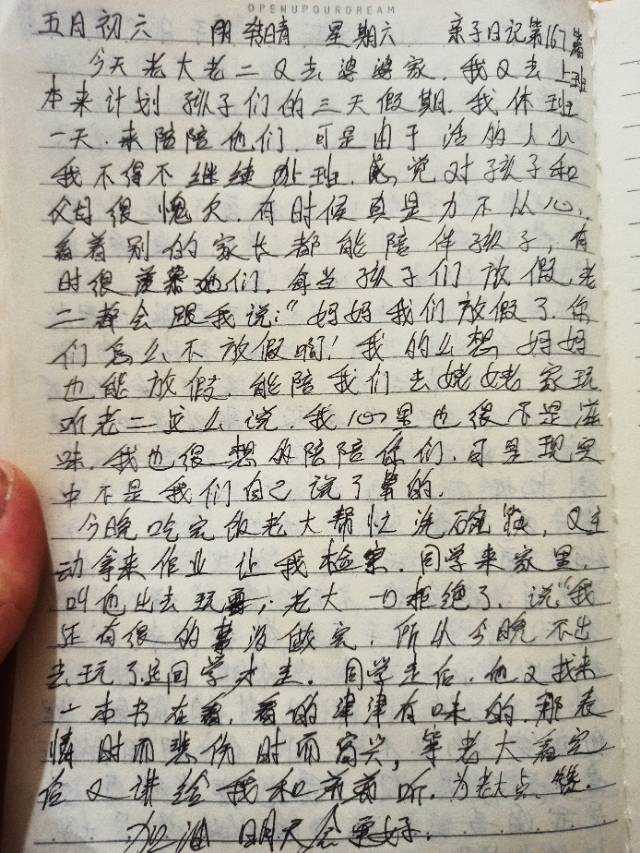 OPENUPOURDREAM
五月初六 阴转晴 星期六 亲子日记第167篇
今天老大老二又去婆婆家.我又去上班
本来计划孩子们的三天假期.我休班
一天.来陪陪他们.可是由于活的人少
我不得不继续上班.感觉对孩子和
父母很愧欠.有时候真是力不从心,
看着别的家长都能陪伴孩子,有
时很羡慕她们.每当孩子们放假,老
二都会跟我说:"妈妈我们放假了.你
们怎么不放假啊!我的么想妈妈
也能放假,能陪我们去姥姥家玩
听老二这么说.我心里也很不是滋
味.我也很想的陪陪你们.可是现实
中不是我们自己说了算的.
今晚吃完饭老大帮忙洗碗筷,又主
动拿来作业让我检察.同学来家里.
叫他出去玩耍,老大一口拒绝了.说"我
还有很的事没做完.所以今晚不出
去玩了.这同学才走.同学走后.他又找来
一本书在看,看的津津有味的.那表
情时而悲伤时而高兴,等老大看完
后又讲给我和弟弟听.为老大点赞.
加油 明天会更好.